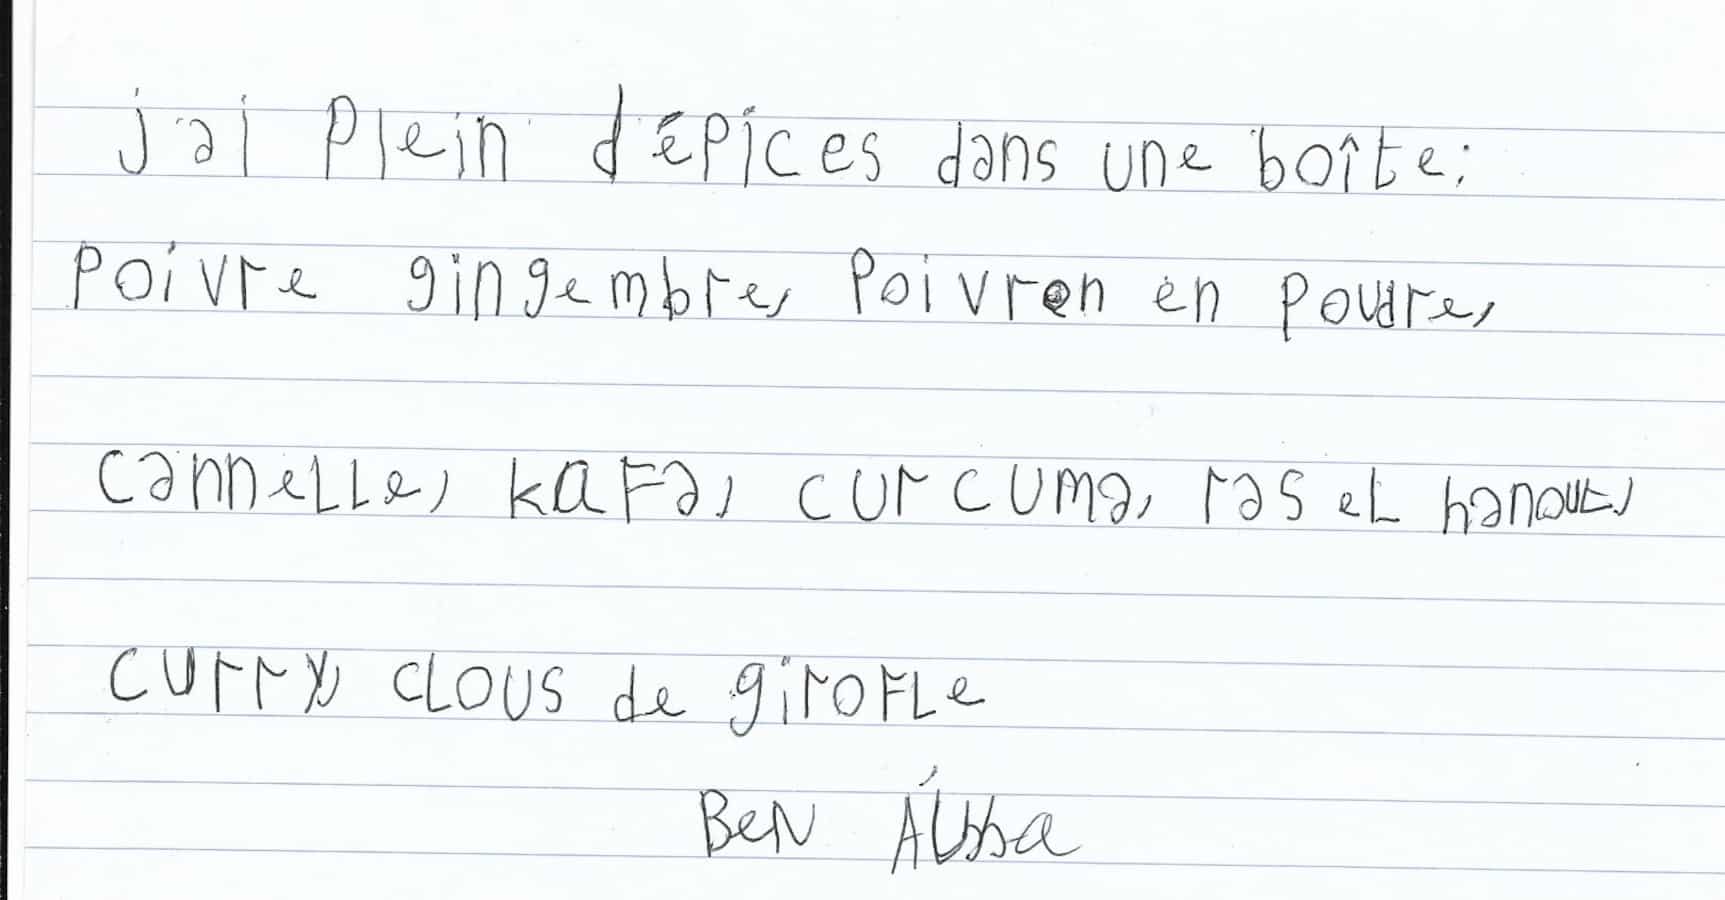 j'ai plein d'épices dans une boîte:
poivre gingembre, poivron en poudre,
cannelle, kafa, curcuma, ras el hanout,
curry, clous de girofle
BEN